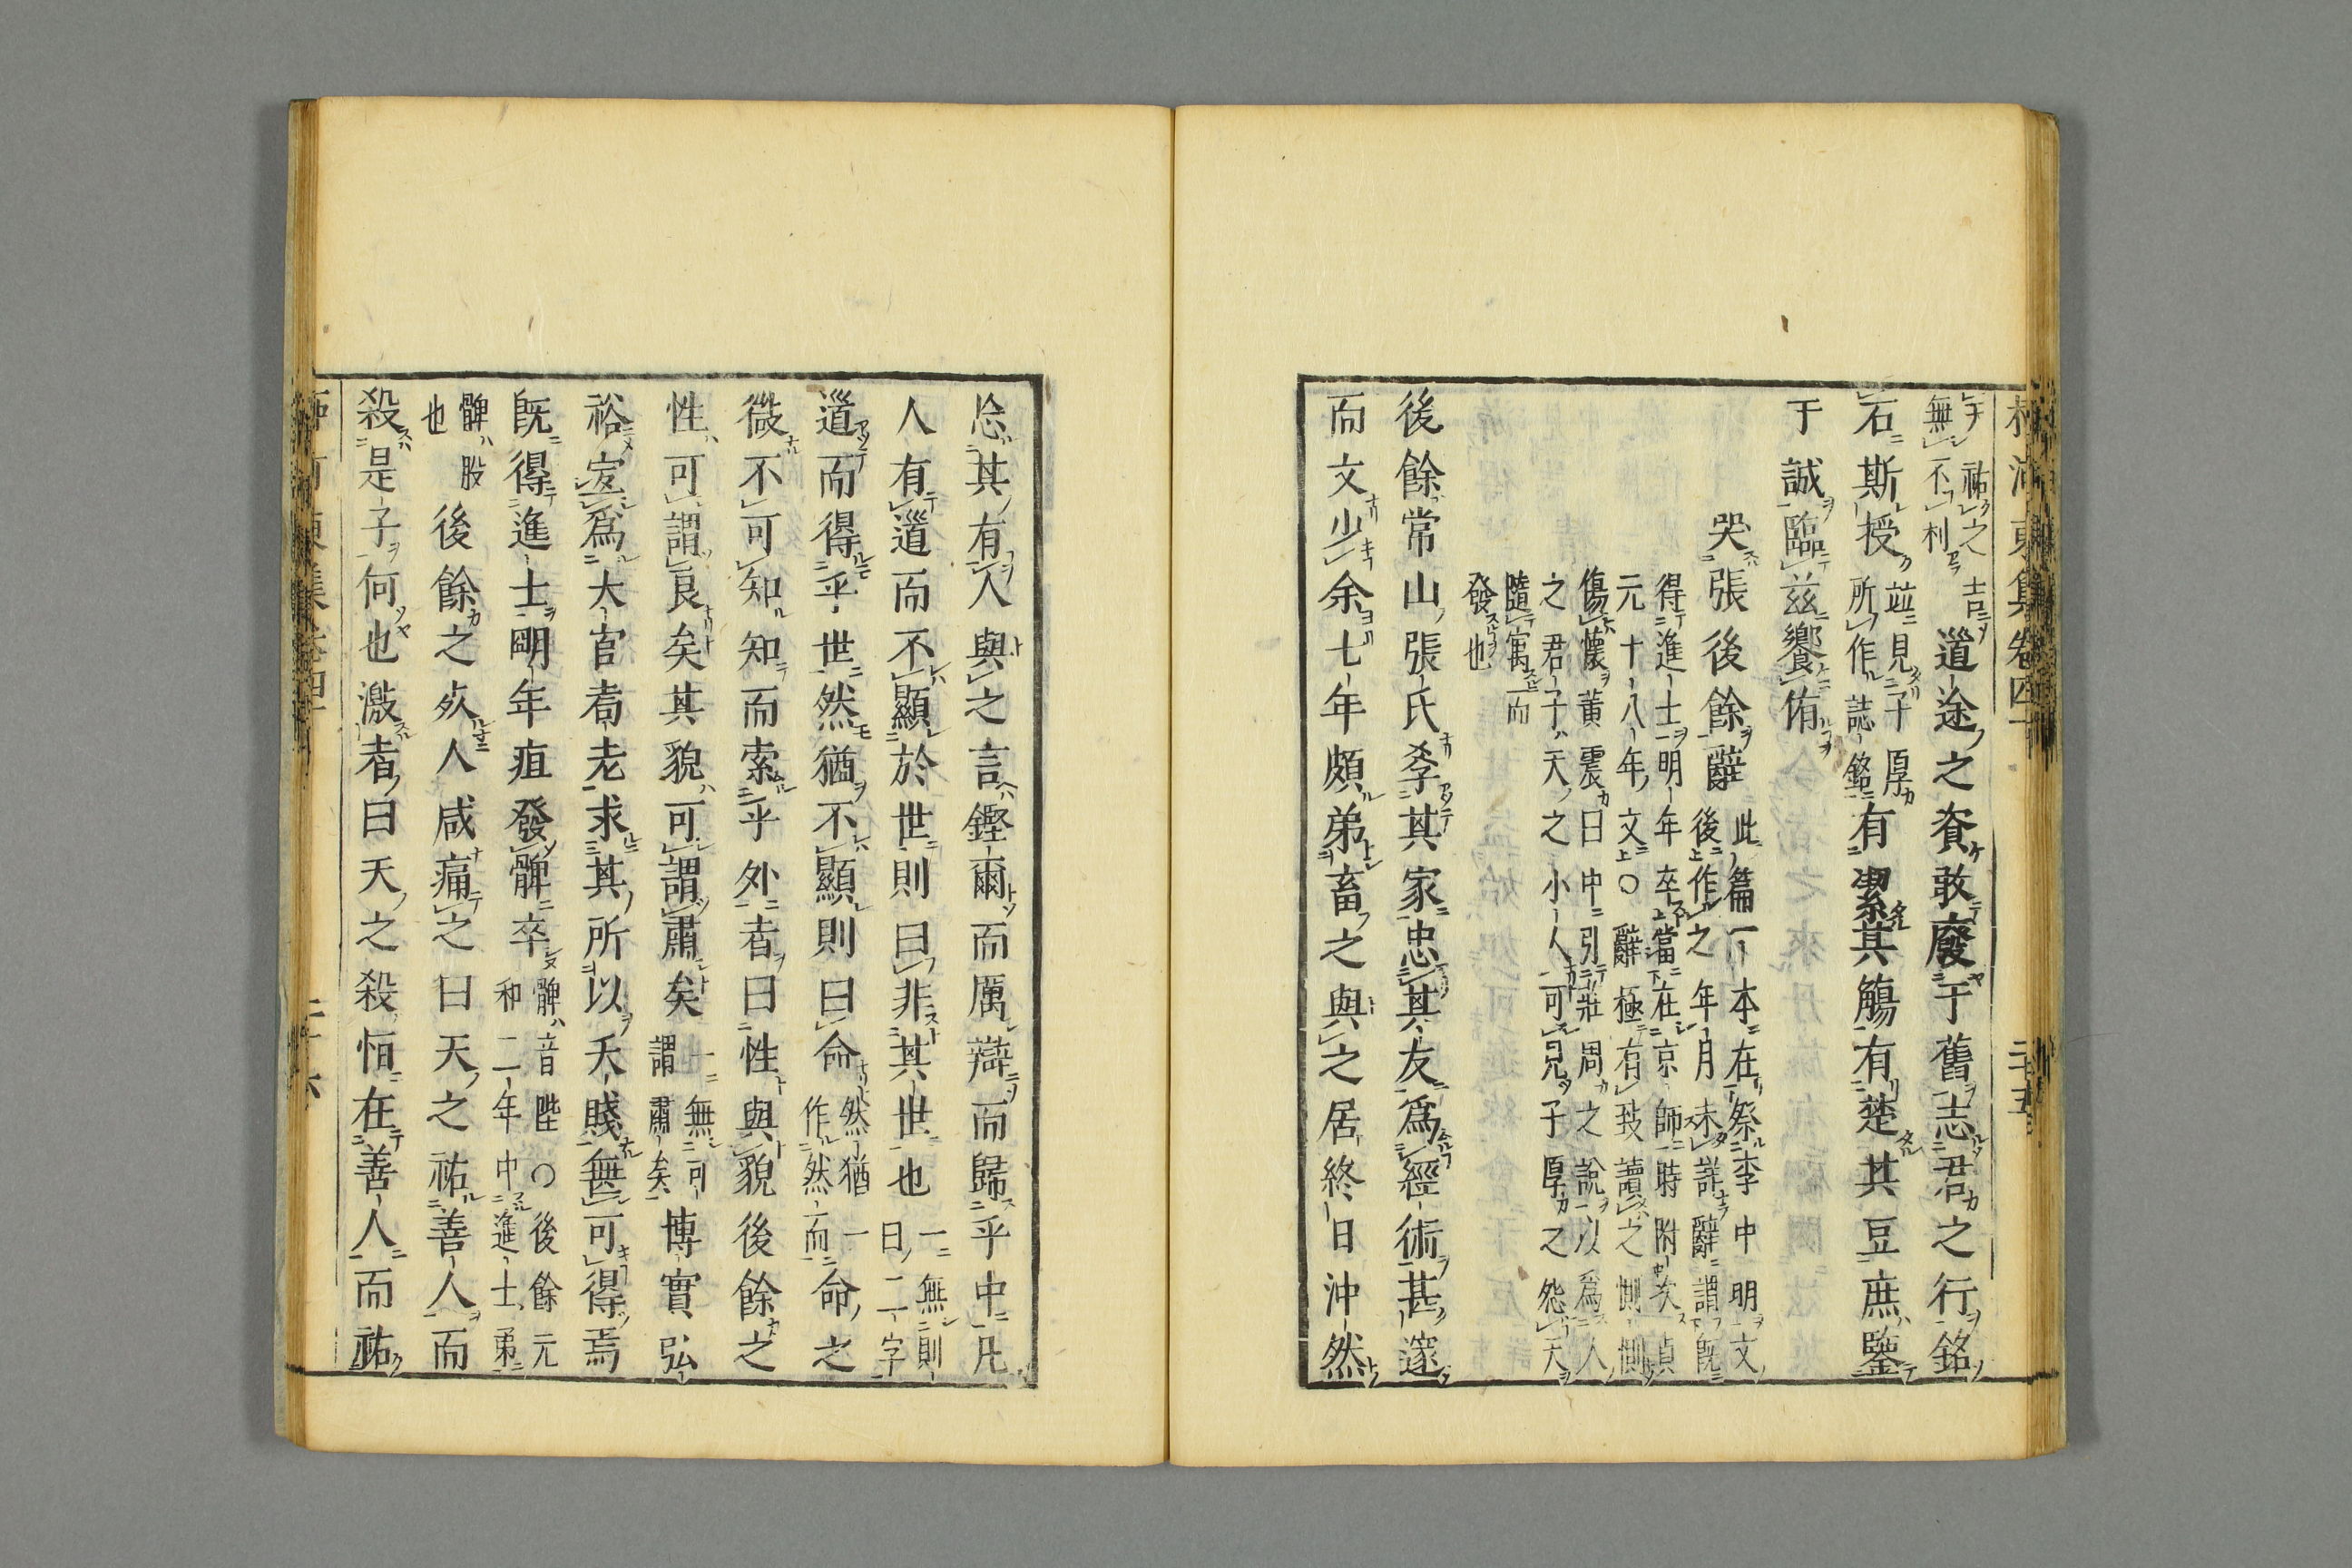 柳河東集卷四十 二十五
于祐之吉無不利道途之資敢廢于舊志君之行銘
石斯授並見于厚所作誌銘有絮其觴有楚其豆庶鑒
于誠臨茲饗侑
哭張後餘辭此篇一本在祭李中明文後作之年月未詳辭謂既
得進士明年卒當在京師時附次貞
元十八年文〇辭極有致讀之惻惻
傷懷黃震曰中引莊周之說以爲人
之君子天之小人可兄子厚之怨天
隨寓而
發也
後餘常山張氏孝其家忠其友爲經術甚邃
而文少余七年頗弟畜之與之居終日沖然
忘其有人與之言鏗爾而厲辯而歸乎中凡
人有道而不顯於世則曰非其世也一無則曰二字
道而得乎世然猶不顯則曰命然猶一作然而命之
微不可知知而索乎外者曰性與貌後餘之
性可謂良矣其貌可謂肅矣一無可謂肅矣博實弘
裕宜爲大官耇老求其所以夭賤無可得焉
既得進士明年疽發髀卒髀音陛〇後餘元和二年中進士第
髀股也後餘之死人咸痛之曰天之祐善人而
殺是子何也激者曰天之殺恒在善人而祐
柳河東集卷四十 二十六